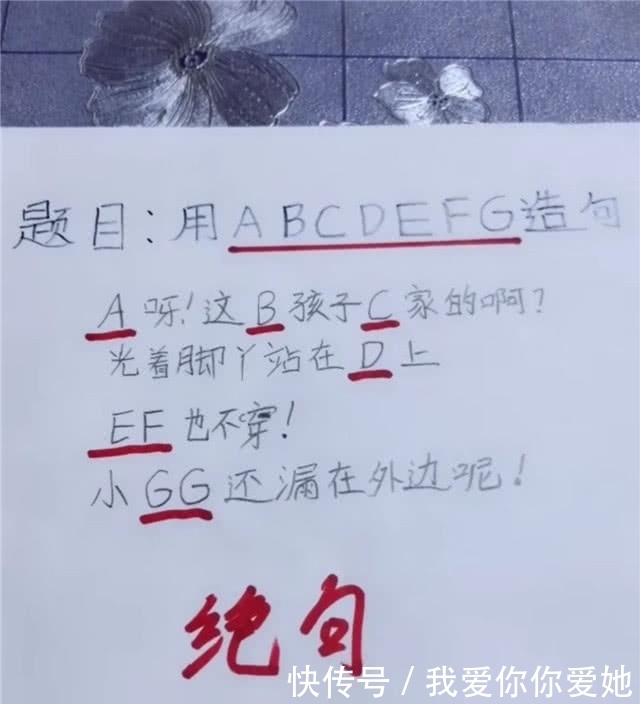 题目:用ABCDEFG造句
A呀!这B孩子C家的啊?
光着脚丫站在D上
EF也不穿!
小GG还漏在外边呢!
绝句
快传号/我爱你你爱她